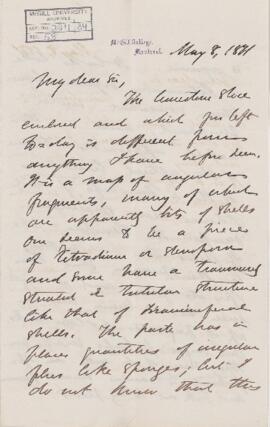 McGILL UNIVERSITY
ARCHIVES
ACC. NO.
REF.
McGill College,
Montreal.
May 8, 1881
My dear Sir,
The limestone slice
enclosed and which you left
today is different from
anything I have before seen.
It is a mass of angular
fragments, many of which
are apparently bits of shells
One seems to be a piece
of Tetradium or Stenopora
and some have a
striated & tubular structure
like that of
shells. The paste has in
places quantities of angular
like sponges; but I
do not know that this